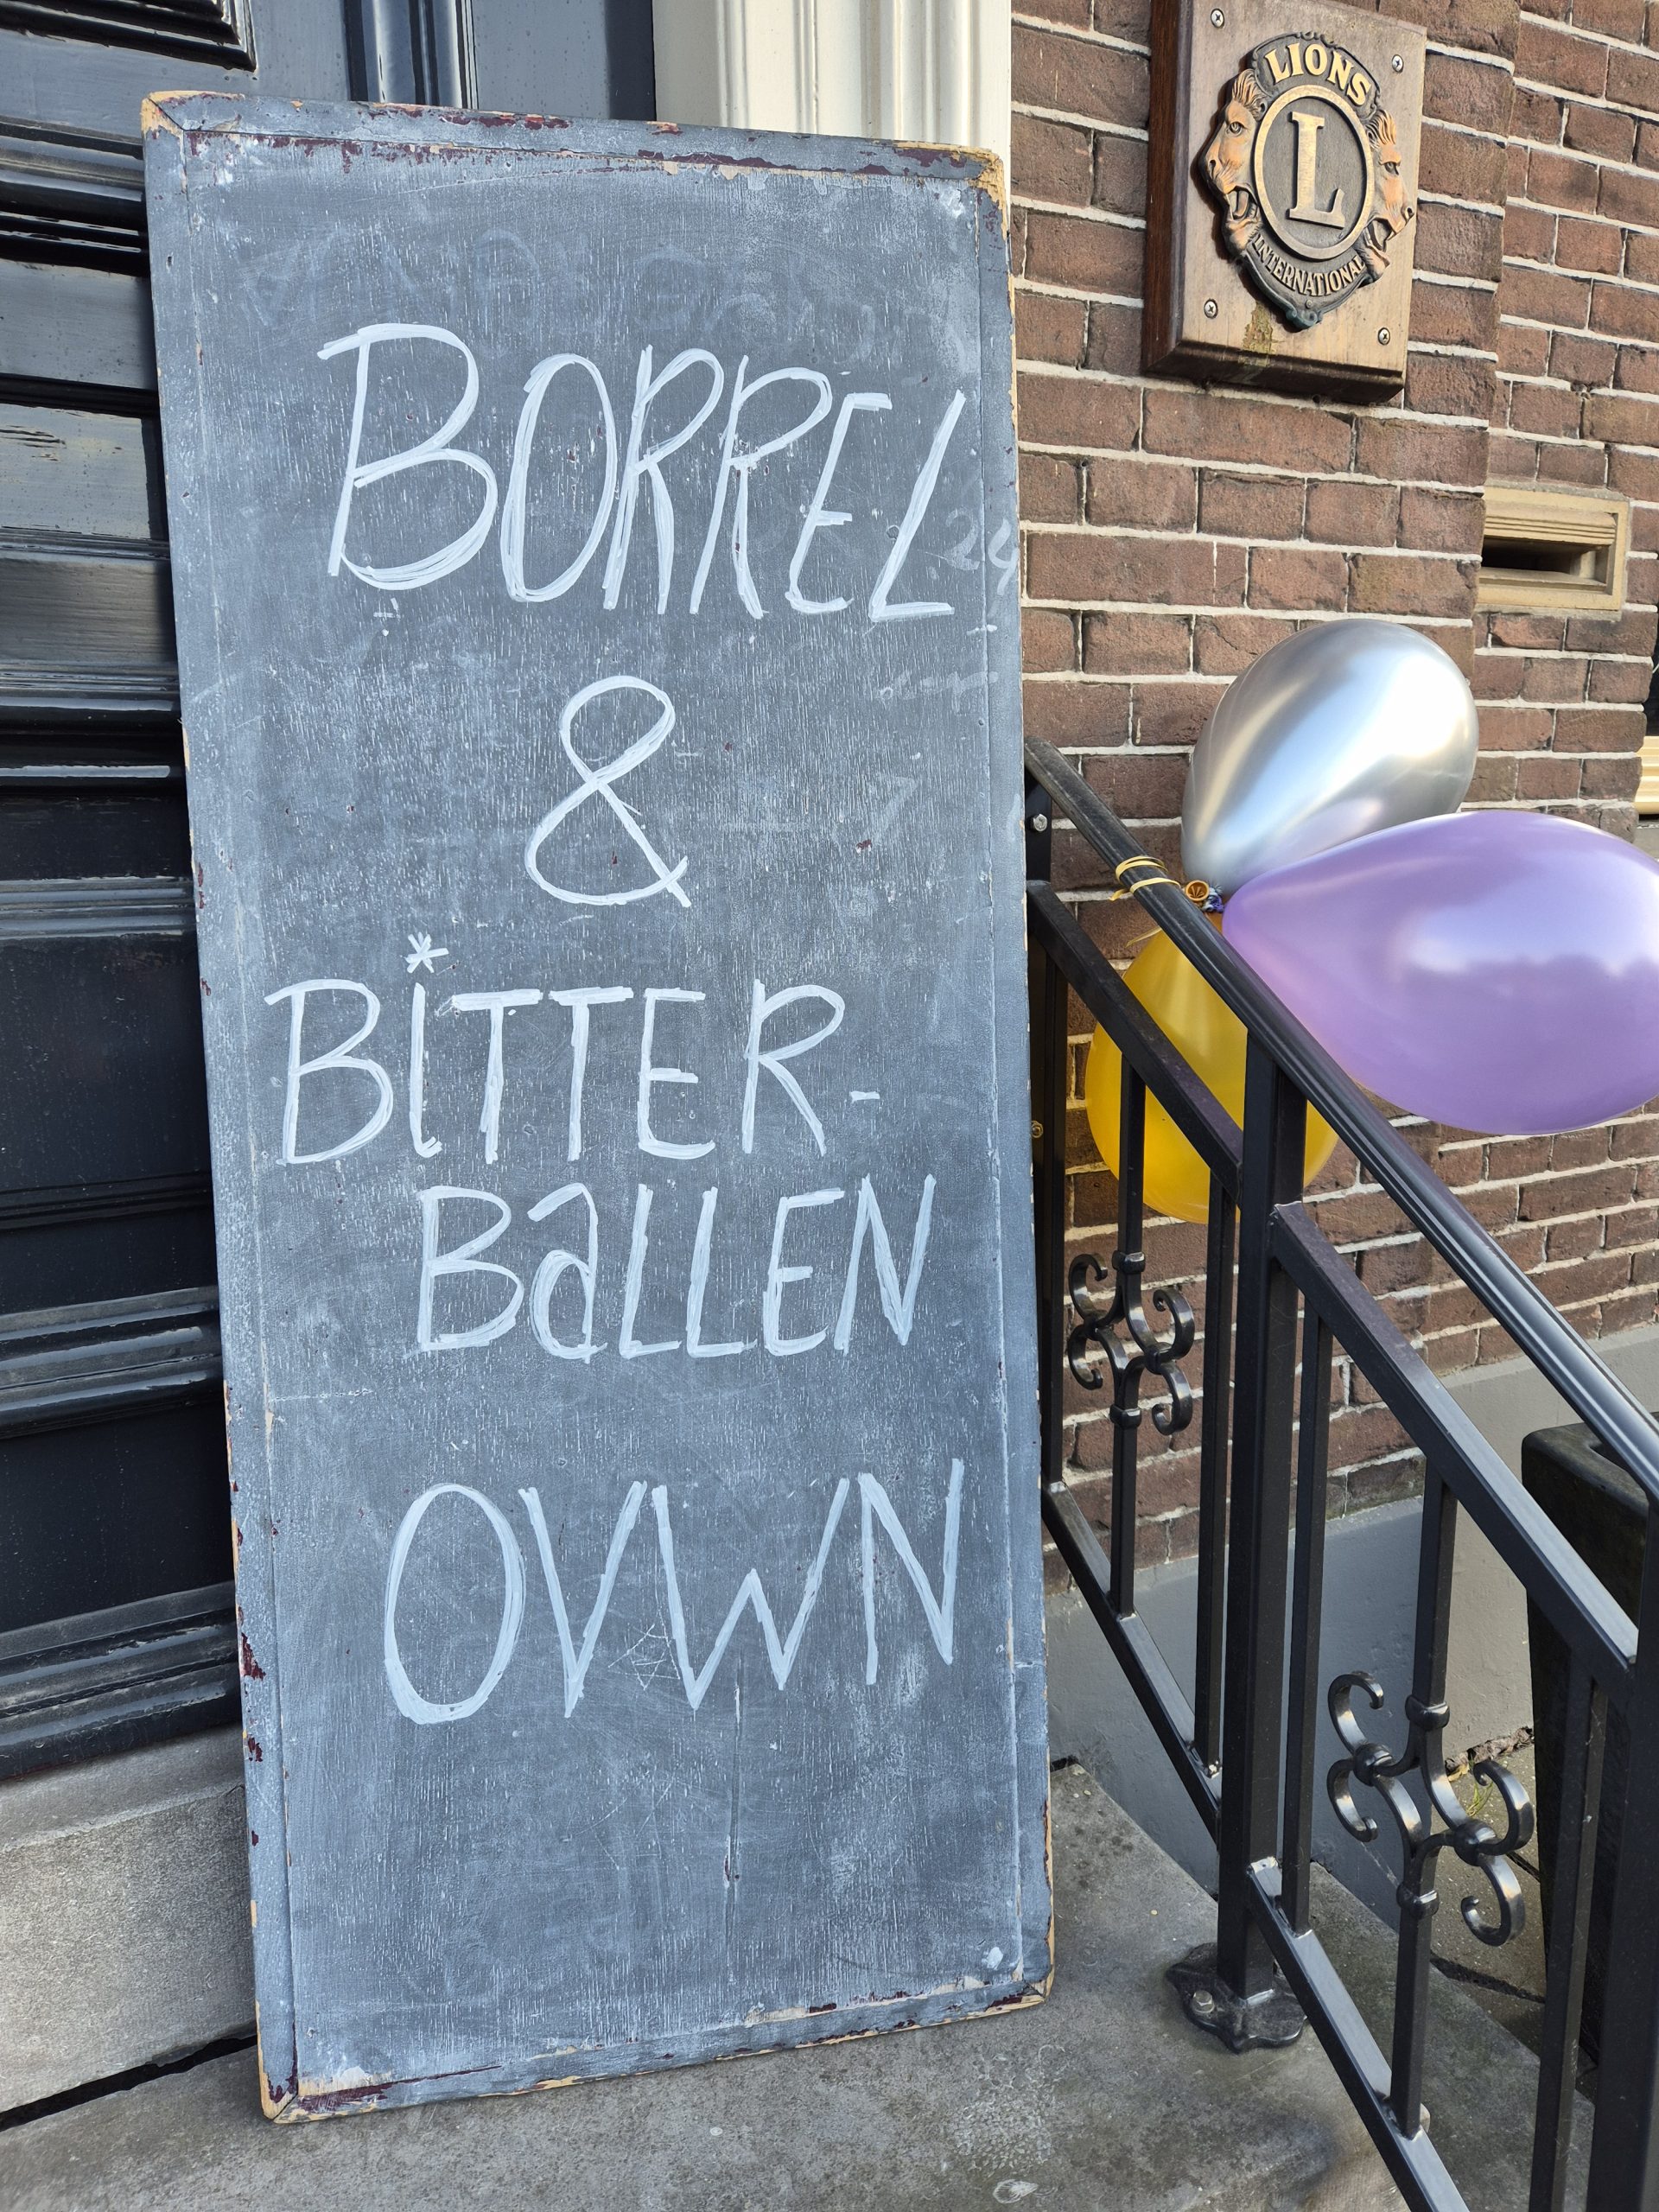 BORREL
&
BiTTER-
BaLLEN
OVWN
LIONS
L
INTERNATIONAL